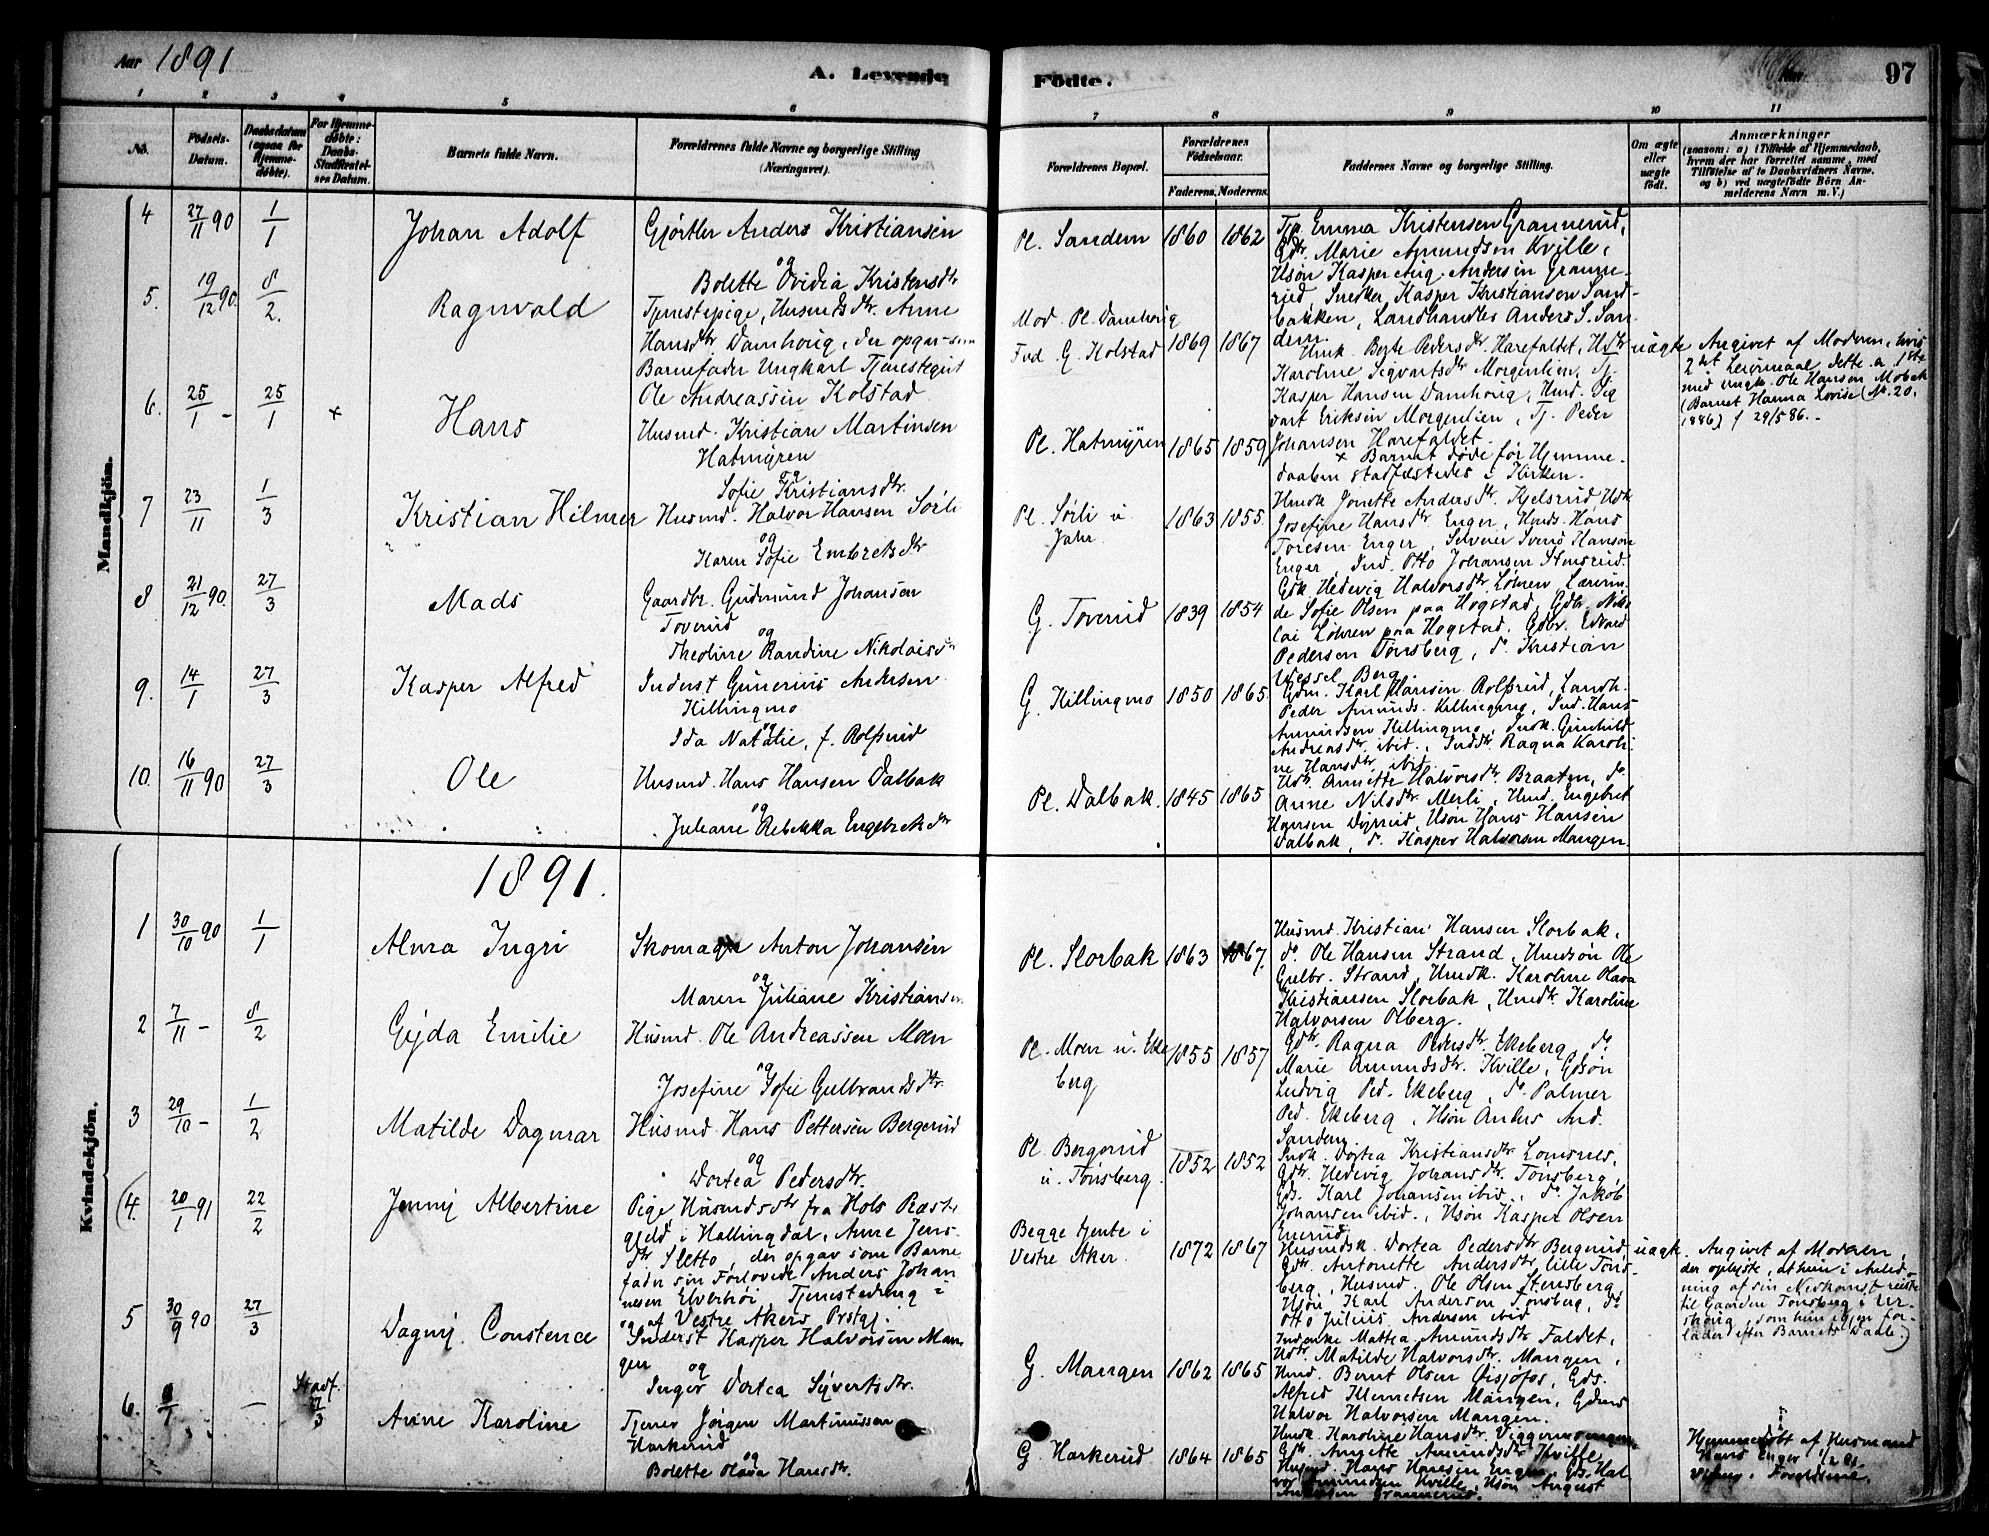 Aar 1891
A. Levende
Födte.
97
1 2 3 4 5 6 7 8 9 10 11
No.
Födsels-Datum.
Daabsdatum (ogsaa for Hjemmedöbte).
For Hjemmedöbte: Daabs-Stadfæstelses Datum.
Barnets fulde Navn.
Forældrenes fulde Navne og borgerlige Stilling (Næringsvei).
Forældrenes Bopæl.
Forældrenes Födselsaar.
Faderens. Moderens.
Faddernes Navne og borgerlige Stilling.
Om ægte eller uægte födt.
Anmærkninger
(saasom: a) i Tilfælde af Hjemmedaab, hvem der har forrettet samme, med Tilföielse af to Daabsvidners Navne, og b) ved uægtefödte Börn Anmelderens Navn m.V.)
Mandkjön.
4 27/11 90 1/1 Johan Adolf
Gjørtler Anders Kristiansen
og
Bolette Ovidia Kristensdtr
Pl. Sandem 1860 1862
Emma Kristensen Grannerud,
Gdtr. Marie Amundsen Kville,
Usøn Kasper Aug. Andersen Granne-
rud, Snedker Kasper Kristiansen Sand-
bakken, Landhandler Anders S. San-
dem.
5. 19/12 90. 8/2. Ragnvald
Tjenestepige, Husmdsdtr. Anne
Hansdtr Damhoug, der opgav som
Barnefader Ungkarl Tjenestegut
Ole Andreassen Kolstad
Mod. Pl. Damhoug
Fad. G. Kolstad 1869 1867
Hmk. Berte Pedersdtr. Harefaldet,
Karoline Sigvartsdtr Morgenlien, Tj.
Kasper Hansen Damhoug, Hmd. Sig
vart Eriksen Morgenlien, Tj. Peder
Johansen Harefaldet.
uægte Angivet af Moderen, hvis
2det Leiermaal dette er, 1ste
med ungk. Ole Hansen Mobæk
(Barnet Hanna Lovise (No. 20,
1886) f 29/5 86.
6. 25/1 - 25/1 × Hans
Husmd. Kristian Martinsen
Hatmyren
og
Sofie Kristiansdtr.
Pl. Hatmyren 1865 1859
× Barnet døde før Hjemme-
daaben stadfæstedes i Kirken.
7 23/11 1/3 Kristian Hilmer
Husmd. Halvor Hansen Sørli
og
Karen Sofie Embretsdtr
Pl. Sørli u
Jahr. 1863 1855.
Hmdk Jonette Andersdtr. Kjelsrud,
Josefine Hansdtr. Enger, Hmds. Hans
Toresen Enger, Selveier Svenö Hanson
Enger, Ind. Otto Johansen Stensrud.
8 21/12 90. 27/3 Mads
Gaardbr. Gudmund Johansen
Toverud
og
Theoline Randine Nikolaisdtr
G. Toverud 1839 1854
Gdk Hedevig Halvorsdtr Løhren Lærerin-
de Sofie Olsen paa Hogstad, Gdbr. Niko
lai Løhren paa Hogstad, Gdbr. Edvard
Pedersen Tønsberg, do. Kristian
Wessel Berg.
9. 14/1 27/3 Kasper Alfred
Inderst Gunerius Andersen
Killingmo
og
Ida Natalie, f. Rolfsrud
G. Killingmo 1850 1865.
Gdm. Karl Hansen Rolfsrud, Landh.
Peder Amunds. Killingmo, Ind. Hans
Amundsen Killingmo, Indk. Gunhild
Andreasdtr. ibid., Inddtr. Ragna Karoli
ne Hansdtr. ibid.
10. 16/11 90 27/3 Ole
Husmd. Hans Hansen Dalbak
og
Juliane Rebekka Engebretsdtr
Pl. Dalbak. 1845 1865
Annette Halvorsdtr. Braaten, do.
Anne Nilsdtr. Merli, Hmd. Engebret
Hansen Dyrud, Usøn Hans Hansen
Dalbak, do. Kasper Halvorsen Mangen.
1891.
Kvindekjön.
1 30/10 90 1/1 Alma Ingri
Skomager Anton Johansen
og
Maren Juliane Kristiansen
Pl. Slorbak 1863 1867.
Husmd. Kristian Hansen Slorbak,
do. Ole Hansen Strand, Hmdsøn Ole
Gulbr. Strand, Hmdk. Karoline Olava
Kristiansen Slorbak, Hmdk Karoline
Halvorsen Olberg.
2 7/11 - 8/2 Gyda Emilie
Husmd. Ole Andreassen Moen
og
Josefine Sofie Gulbrandsdtr.
Pl. Moen u. Eke
berg 1855 1857
Gdtr. Ragna Pedersdtr. Ekeberg, do
Marie Amundsdtr. Kville, Gdsøn
Ludvig Ped. Ekeberg, do Palmer
Ped. Ekeberg, Usøn Anders And.
Sandem.
3 29/10 - 1/2 Matilde Dagmar
Husmd. Hans Pettersen Bergerud
og
Dortea Pedersdtr.
Pl. Bergerud
u. Tønsberg 1852 1852
Indk. Dortea Kristiansdtr. Lomsnes,
Gdtr. Hedevig Johansdtr. Tønsberg,
Gds. Karl Johansen ibid., do. Jakob
Johansen ibid., Usøn Kasper Olsen
Enerud.
(4. 20/1 91 22/2 Jenny Albertine
Pige Husmdsdtr fra Hols Præste
gjeld i Hallingdal, Anne Jens-
dtr. Sletto, der opgav som Barne
fader sin Forlovede Anders Johan
nesen Elverhöi, Tjenestedreng i
og af Vestre Akers Prstgj.
Begge tjente i
Vestre Aker. 1872 1867
Husmdsk. Dortea Pedersdtr Bergerud,
Gdtr. Antonette Andersdtr. lille Tøns-
berg, Husmd. Ole Olsen Stensberg,
Usøn. Karl Andersen Tønsberg, do
Otto Julius Andersen ibid
uægte. Angivet af Moderen,
der oplyste, at hun i Anled-
ning af sin Nedkomst reiste
til Gaarden Tønsberg i Ur-
skoug, som hun igjen for-
lader efter Barnets Daab.)
5 30/9 90 27/3 Dagny Constence
Inderst Kasper Halvorsen Man
gen
og
Inger Dortea Syvertsdtr.
G. Mangen 1862 1865
Mattea Amundsdtr. Faldet,
Matilde Halvorsdtr. Mangen,
Hmd. Bernt Olsen, Gds.
Alfred Klemetsen Mangen, Gdmd
Halvor Halvorsen Mangen.
6. — Stadf. Anne Karoline
Tjener Jörgen Martinussen
Harkerud
og
Bolette Olava Hansdtr.
G Harkerud 1864 1865
Hmdk. Karoline Hansdtr.
Gdtr. Annette Amundsdtr. Kville,
Husmd. Hans Hansen Enger, Gds. Hal
vor Amundsen Kville, Usøn August
Andersen Grannerud.
Hjemmedöbt af Husmand
Hans Enger
Forældrene.